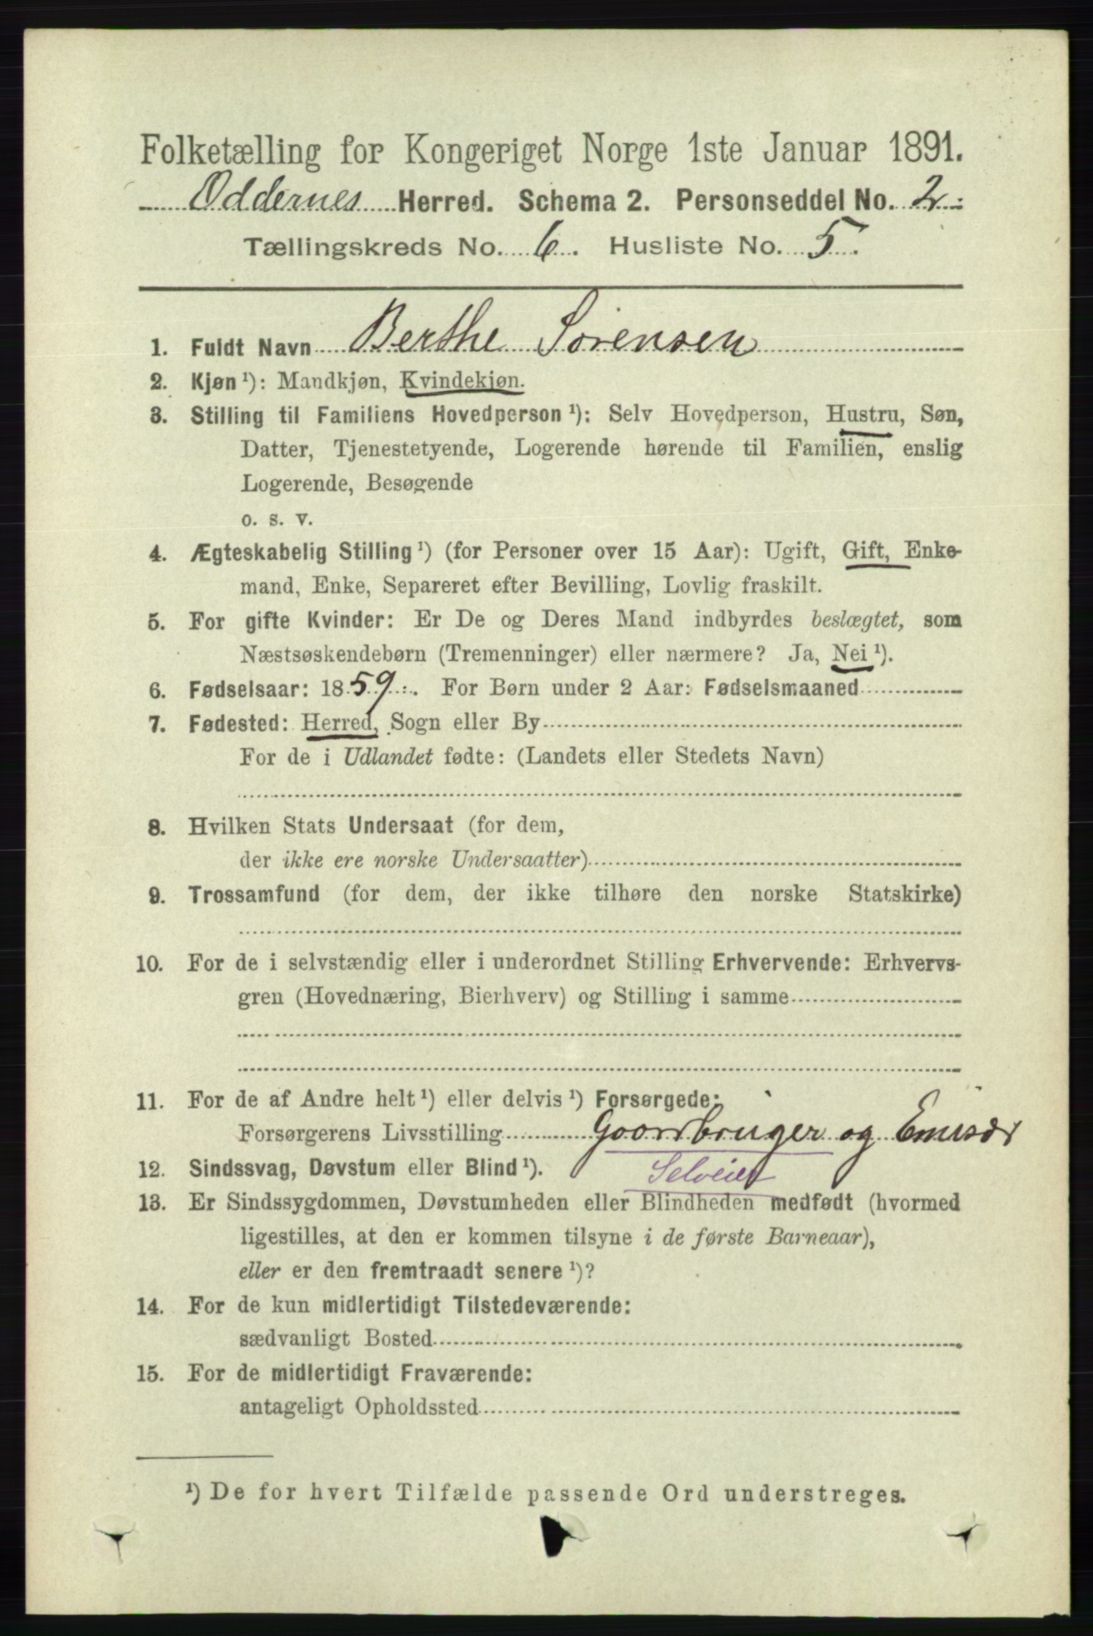 Folketælling for Kongeriget Norge 1ste Januar 1891.
Oddernes Herred. Schema 2. Personseddel No. 2.
Tællingskreds No. 6. Husliste No. 5.
1. Fuldt Navn Berthe Sörensen
2. Kjøn ¹): Mandkjøn, Kvindekjøn.
3. Stilling til Familiens Hovedperson ¹): Selv Hovedperson, Hustru, Søn,
Datter, Tjenestetyende, Logerende hørende til Familien, enslig
Logerende, Besøgende
o. s. v.
4. Ægteskabelig Stilling ¹) (for Personer over 15 Aar): Ugift, Gift, Enke-
mand, Enke, Separeret efter Bevilling, Lovlig fraskilt.
5. For gifte Kvinder: Er De og Deres Mand indbyrdes beslægtet, som
Næstsøskendebørn (Tremenninger) eller nærmere? Ja, Nei ¹).
6. Fødselsaar: 1859. For Børn under 2 Aar: Fødselsmaaned
7. Fødested: Herred, Sogn eller By
For de i Udlandet fødte: (Landets eller Stedets Navn)
8. Hvilken Stats Undersaat (for dem,
der ikke ere norske Undersaatter)
9. Trossamfund (for dem, der ikke tilhøre den norske Statskirke)
10. For de i selvstændig eller i underordnet Stilling Erhvervende: Erhvervs-
gren (Hovednæring, Bierhverv) og Stilling i samme
11. For de af Andre helt ¹) eller delvis ¹) Forsørgede:
Forsørgerens Livsstilling Gaardbruger og Emisær
12. Sindssvag, Døvstum eller Blind ¹). Selveier
13. Er Sindssygdommen, Døvstumheden eller Blindheden medfødt (hvormed
ligestilles, at den er kommen tilsyne i de første Barneaar),
eller er den fremtraadt senere ¹)?
14. For de kun midlertidigt Tilstedeværende:
sædvanligt Bosted
15. For de midlertidigt Fraværende:
antageligt Opholdssted
¹) De for hvert Tilfælde passende Ord understreges.